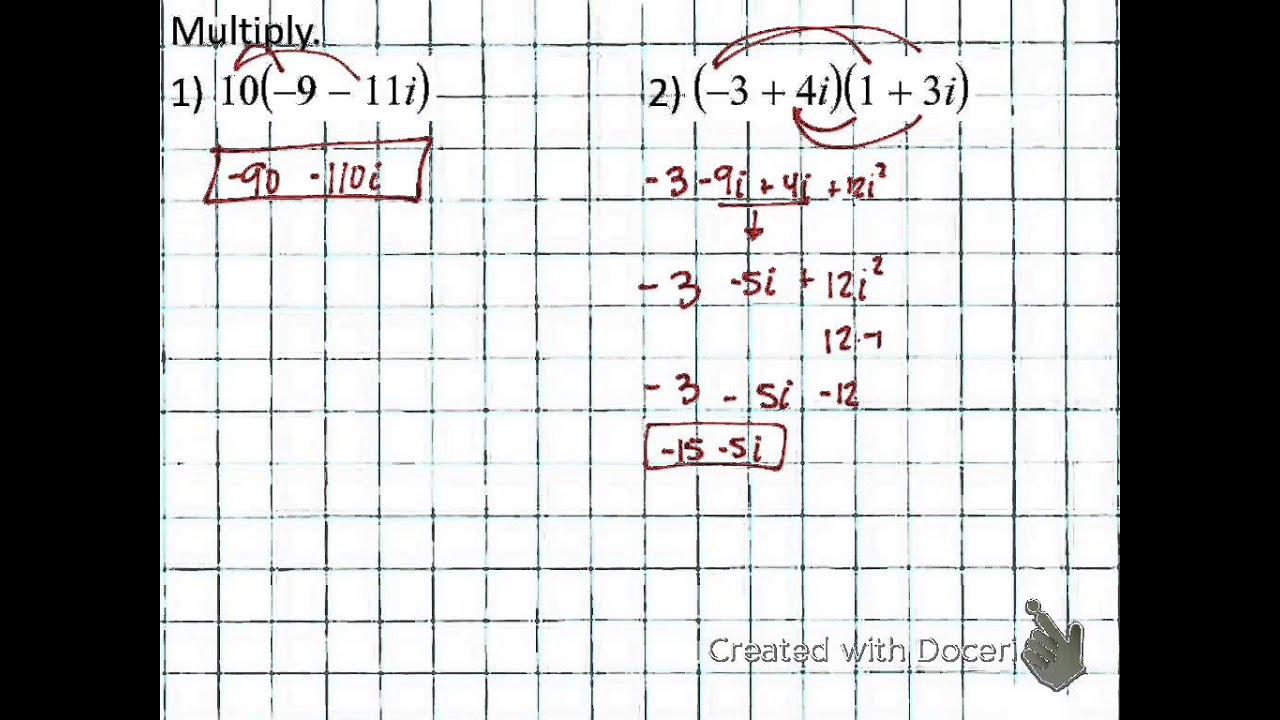 Multiply.
1) 10(−9 − 11i)
-90 -110i
2) (−3 + 4i)(1 + 3i)
-3 -9i + 4i + 12i²
-3 -5i + 12i²
12·-1
-3 - 5i -12
-15 -5i
Created with Doceri